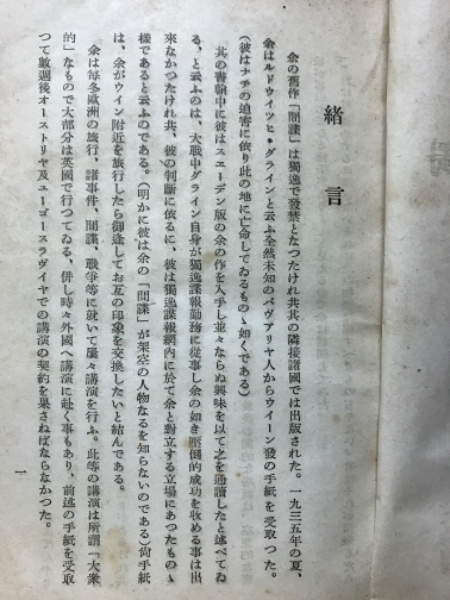 緒言
余の舊作「間諜」は獨逸で發禁となつたけれ共其の隣接諸國では出版された。一九三五年の夏、
余はルドウイツヒ・グラインと云ふ全然未知のバヴアリヤ人からウイーン發の手紙を受取つた。
(彼はナチの迫害に依り此の地に亡命してゐるものゝ如くである)
其の書翰中に彼はスエーデン版の余の作を入手し並々ならぬ興味を以て之を通讀したと述べてゐ
る、と云ふのは、大戰中グライン自身が獨逸諜報勤務に從事し余の如き壓倒的成功を收める事は出
來なかつたけれ共、彼の判斷に依るに、彼は獨逸諜報網内に於て余と對立する立場にあつたものゝ
樣であると云ふのである。(明かに彼は余の「間諜」が架空の人物なるを知らないのである)尙手紙
は、余がウイン附近を旅行したら御逢してお互の印象を交換したいと結んである。
余は每冬歐洲の旅行、諸事件、間諜、戰爭等に就いて屢々講演を行ふ。此等の講演は所謂「大衆
的」なもので大部分は英國で行つてゐる、併し時々外國へ講演に赴く事もあり、前述の手紙を受取
つて數週後オーストリヤ及ユーゴースラヴイヤでの講演の契約を果さねばならなかつた。
一